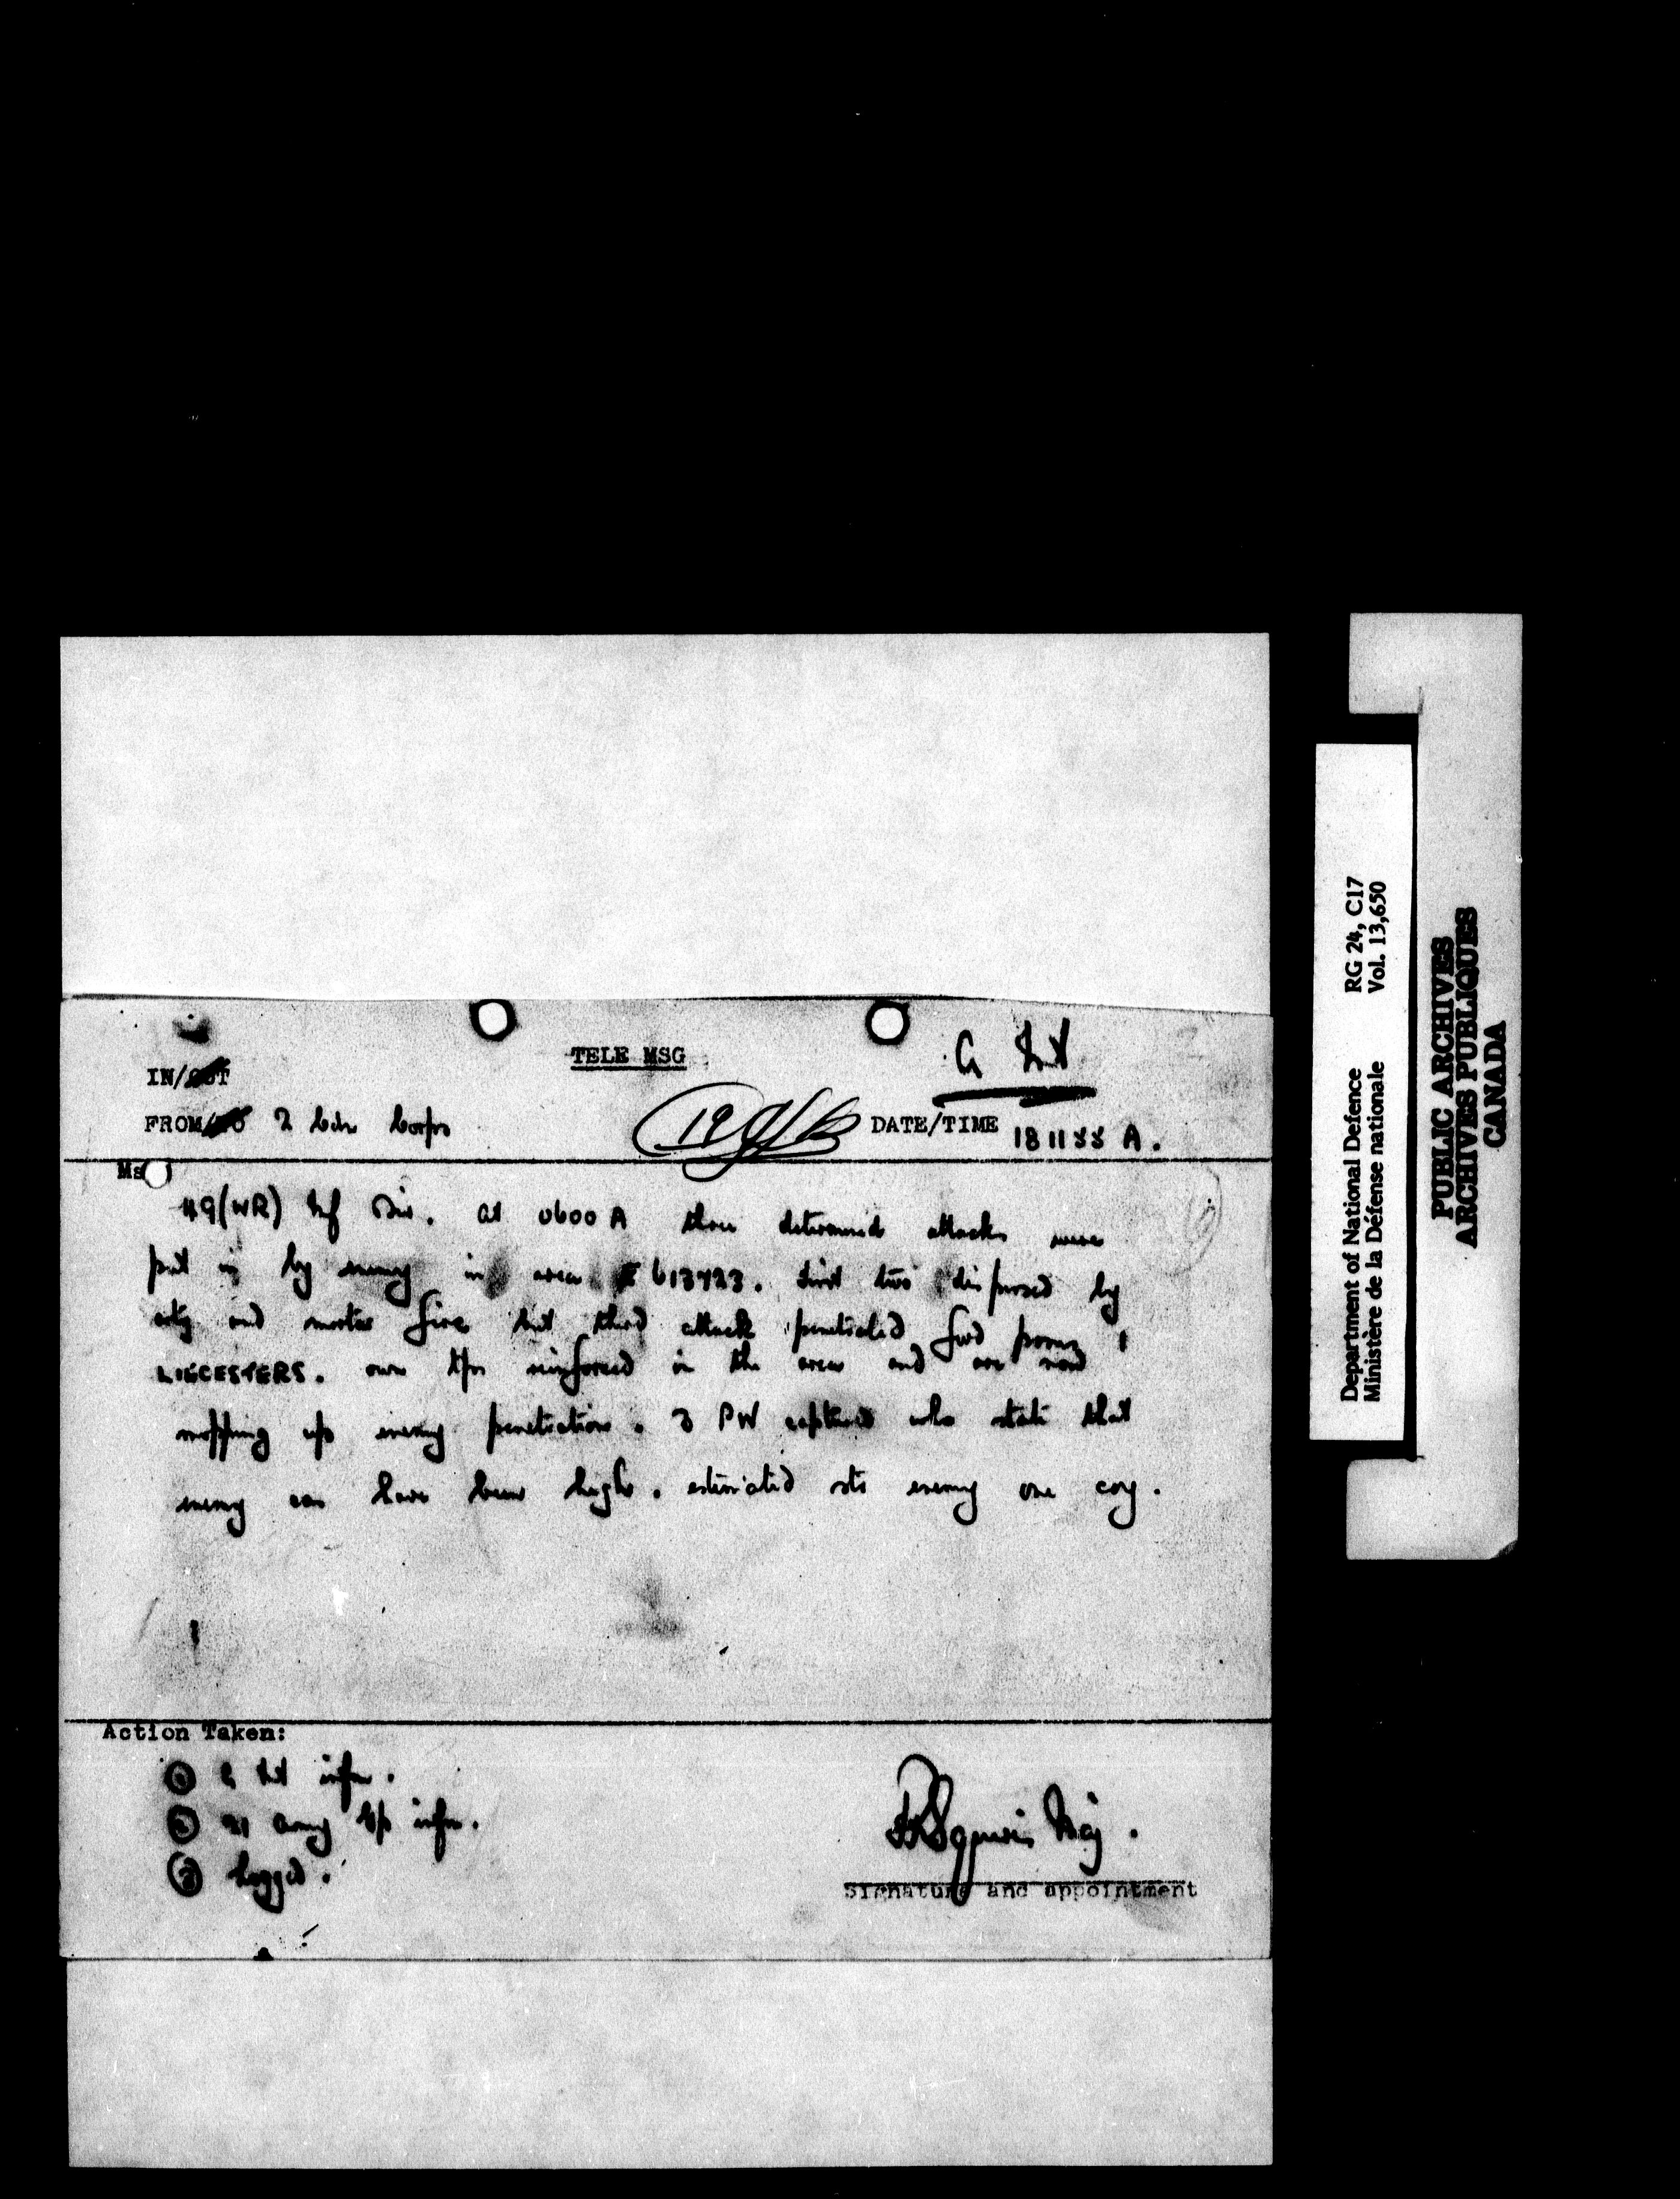 TELE MSG
G Int
IN/OUT
FROM/TO 2 Cdn Corps
DATE/TIME 181155 A.
Ms
49(WR) Inf Div. at 0600 A three determined attacks were
put in by enemy in area E 613723. first two dispersed by
arty and mortar fire but third attack penetrated fwd posns 1
LIECESTERS. own tps reinforced in the area and are now
mopping up enemy penetration. 3 PW captured who state that
enemy cas have been high. estimated str enemy one coy.
Action Taken:
① G Int infm.
② 21 Army Gp infm.
③ Logged.
Maj.
Signature and appointment
Department of National Defence RG 24, C17
Ministère de la Défense nationale Vol. 13,650
PUBLIC ARCHIVES
ARCHIVES PUBLIQUES
CANADA